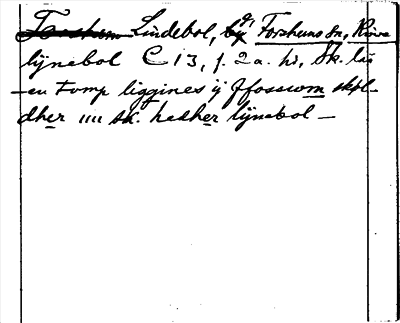 Torshem Lindebol, by, Forshems sn, Kinne
lÿnebol C 13, f. 2 a. hr, Sk. læ
-en tomp liggines ÿ ffossom skyl-
dher IIII sk. hedher lÿnebol -